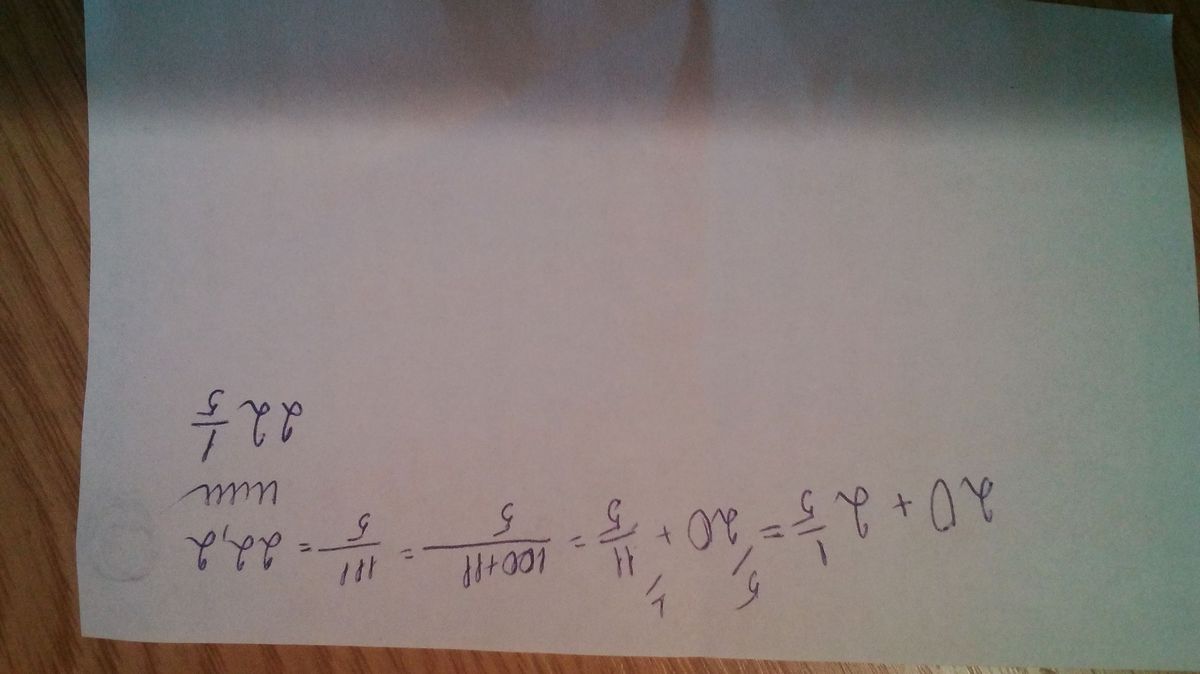 20 + 2 1/5 = 20 5/ + 11/5 1/ = 100+11/5 = 111/5 = 22,2
или
22 1/5